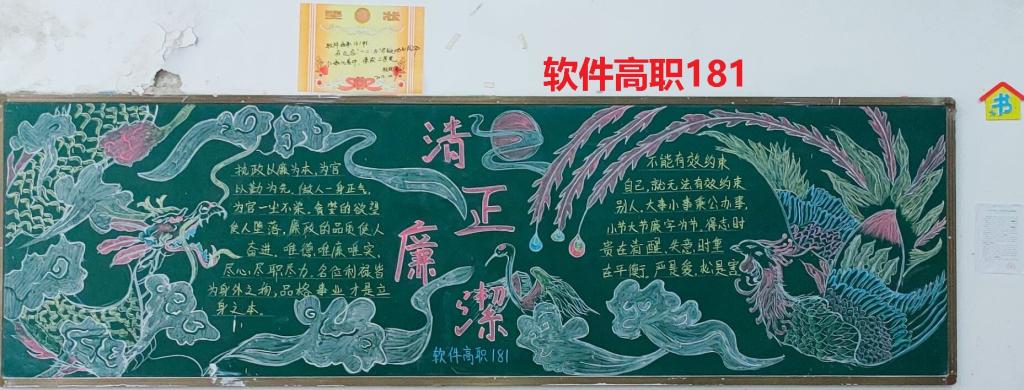 奖 状
软件高职181
书
清
正
廉
潔
执政以廉为本,为官
以勤为先,做人一身正气,
为官一尘不染,贪婪的欲望
使人堕落,廉政的品质使人
奋进,唯德,唯廉,唯实,
尽心,尽职,尽力,名位利禄皆
为身外之物,品格事业才是立
身之本。
不能有效约束
自己,就无法有效约束
别人,大事小事秉公办事,
小节大节廉字为节,得志时
贵在清醒,失意时重
在平衡,严是爱,松是害
软件高职181